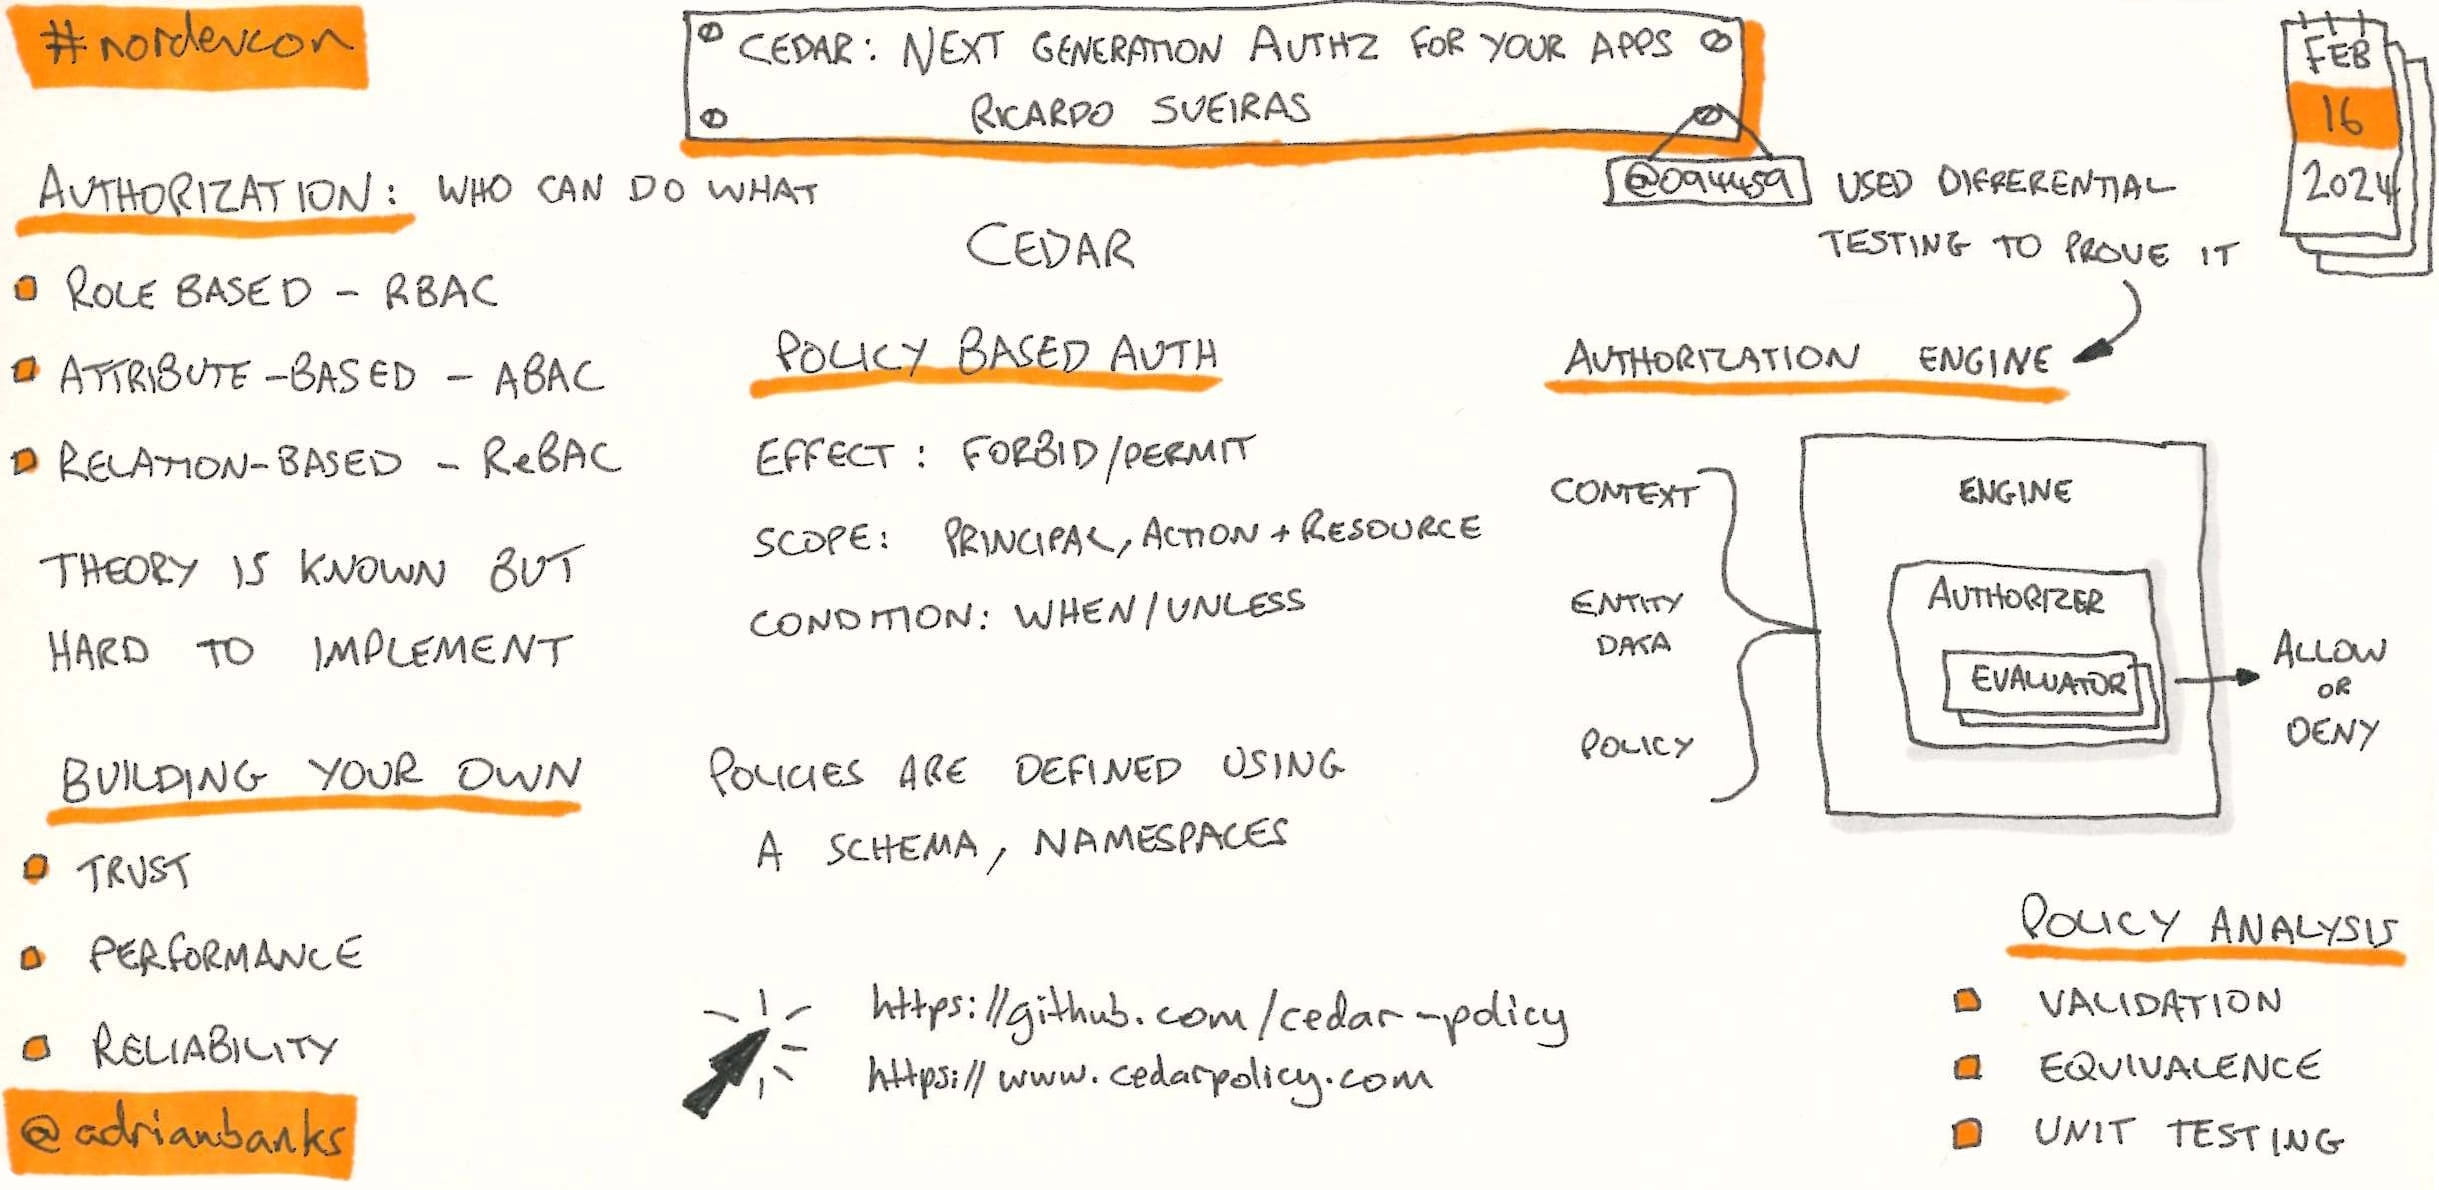 #nordevcon
CEDAR: NEXT GENERATION AUTHZ FOR YOUR APPS
RICARDO SUEIRAS
@094459
FEB
16
2024
AUTHORIZATION: WHO CAN DO WHAT
ROLE BASED - RBAC
ATTRIBUTE-BASED - ABAC
RELATION-BASED - ReBAC
THEORY IS KNOWN BUT
HARD TO IMPLEMENT
BUILDING YOUR OWN
TRUST
PERFORMANCE
RELIABILITY
@adrianbanks
CEDAR
POLICY BASED AUTH
EFFECT: FORBID/PERMIT
SCOPE: PRINCIPAL, ACTION + RESOURCE
CONDITION: WHEN/UNLESS
POLICIES ARE DEFINED USING
A SCHEMA, NAMESPACES
https://github.com/cedar-policy
https://www.cedarpolicy.com
USED DIFFERENTIAL
TESTING TO PROVE IT
AUTHORIZATION ENGINE
CONTEXT
ENTITY
DATA
POLICY
ENGINE
AUTHORIZER
EVALUATOR
ALLOW
OR
DENY
POLICY ANALYSIS
VALIDATION
EQUIVALENCE
UNIT TESTING